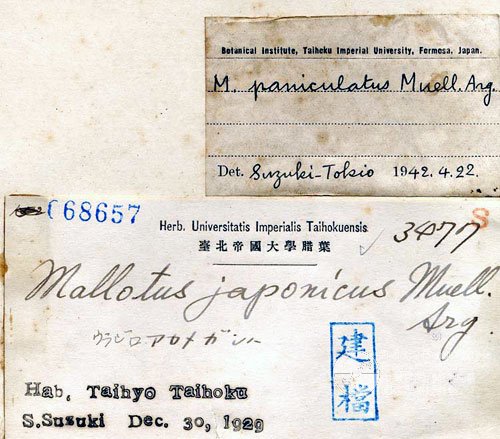 Botanical Institute, Taihoku Imperial University, Formosa, Japan.
M. paniculatus Muell. Arg.
Det. Suzuki-Tokio 1942. 4. 22.
068657
S
Herb. Universitatis Imperialis Taihokuensis
臺北帝國大學腊葉
3477
Mallotus japonicus Muell.
Arg.
建檔
Hab. Taihyo Taihoku
S. Suzuki Dec. 30, 1929